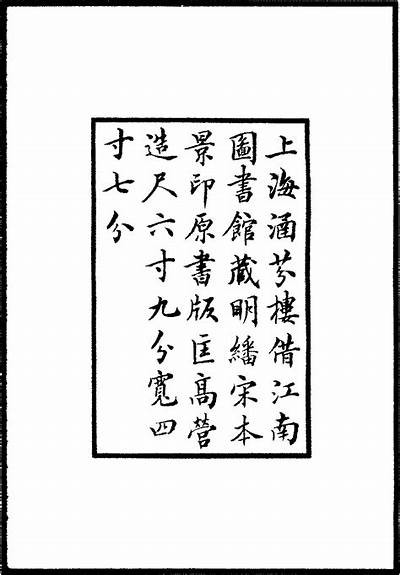 上海涵芬樓借江南
圖書館藏明繙宋本
景印原書版匡高營
造尺六寸九分寬四
寸七分